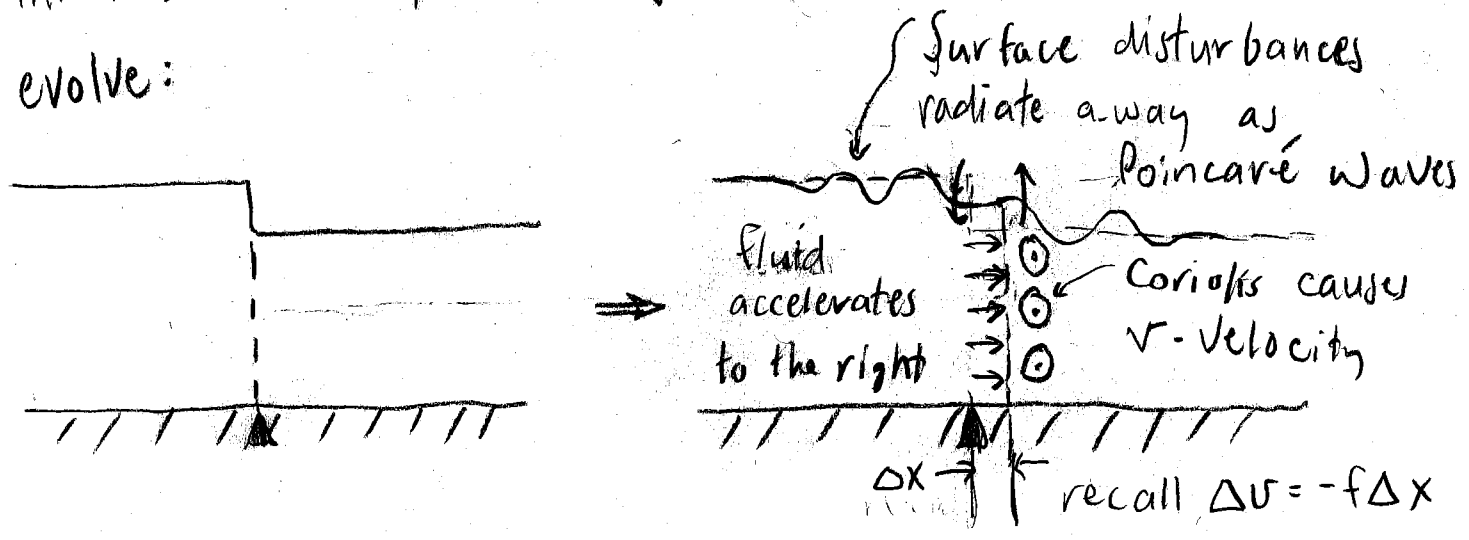 evolve:
Surface disturbances
radiate away as
Poincaré waves
fluid
accelerates
to the right
Coriolis causes
v-velocity
Δx
recall Δv = -fΔx